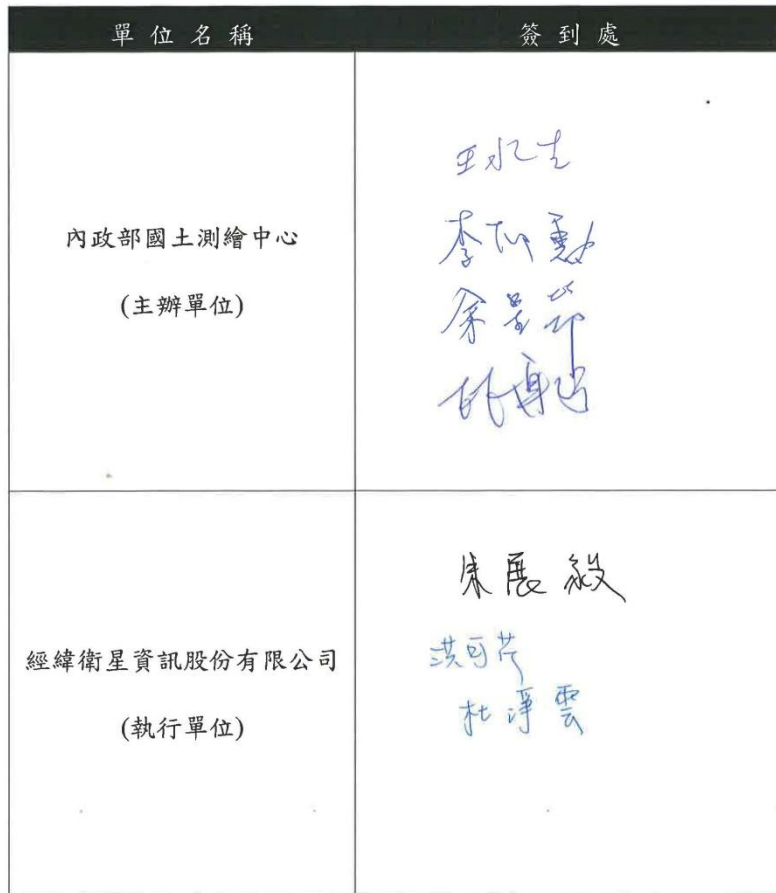 單位名稱 簽到處
內政部國土測繪中心
(主辦單位)
李 勳
經緯衛星資訊股份有限公司
(執行單位)
朱展毅
洪可芹
杜淨雲